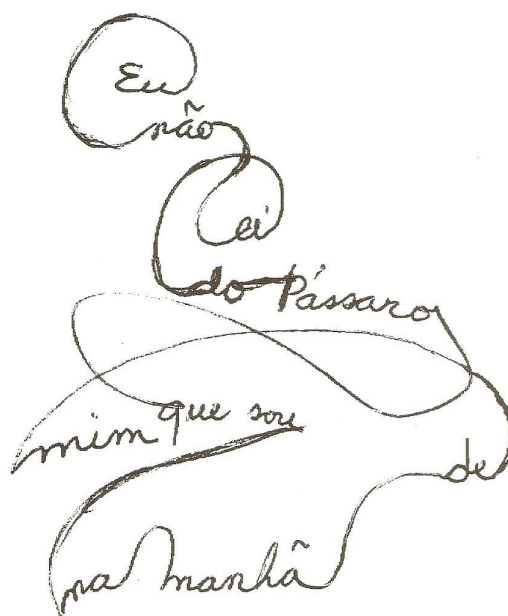 Eu
não
Sei
do Pássaro
mim que sou
de
na manhã